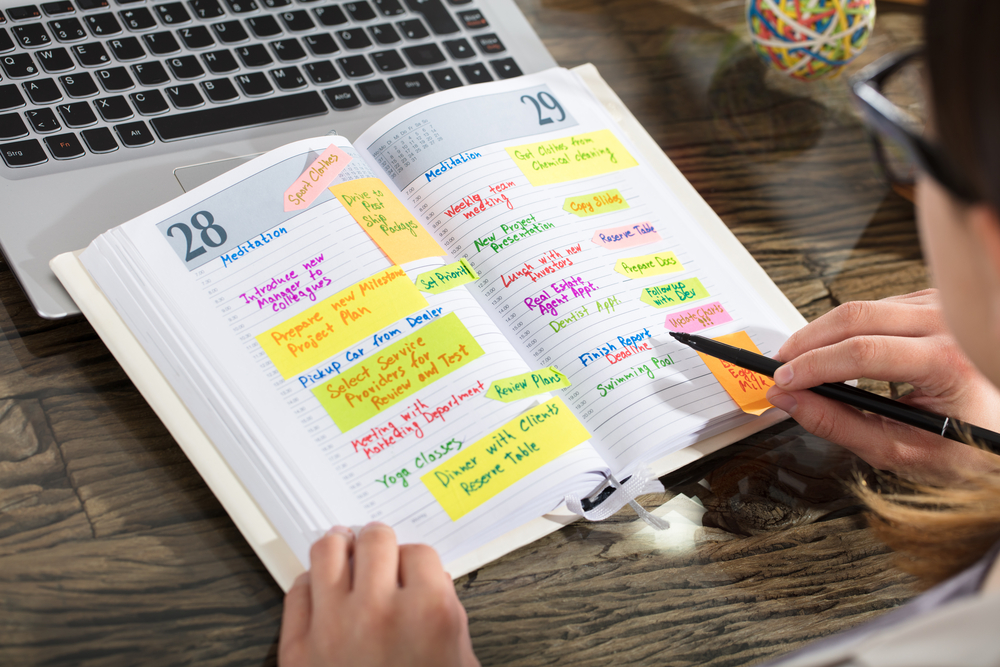 28
Meditation
Sport Clothes
Introduce new
Manager to
colleagurs
Drive to
Post
Ship
Packages
Prepare new Milestone
Project Plan
Set Priority
Pickup Car from Dealer
Select Service
Providers for
Review and Test
Meeting with
Marketing Department
Review Plans
Yoga Classes
Dinner with Clients
Reserve Table
29
Meditation
Get Clothes from
Chemical cleaning
Weekly team
meeting
Copy Slides
New Project
Presentation
Reserve Table
Lunch with new
Investors
Prepare Docs
Real Estate
Agent Appt.
Followup
with Dev
Dentist Appt.
Update Charts
!!!
Finish Report
Deadline
Swimming Pool
Milk
Strg
Fn
Alt
Alt Gr